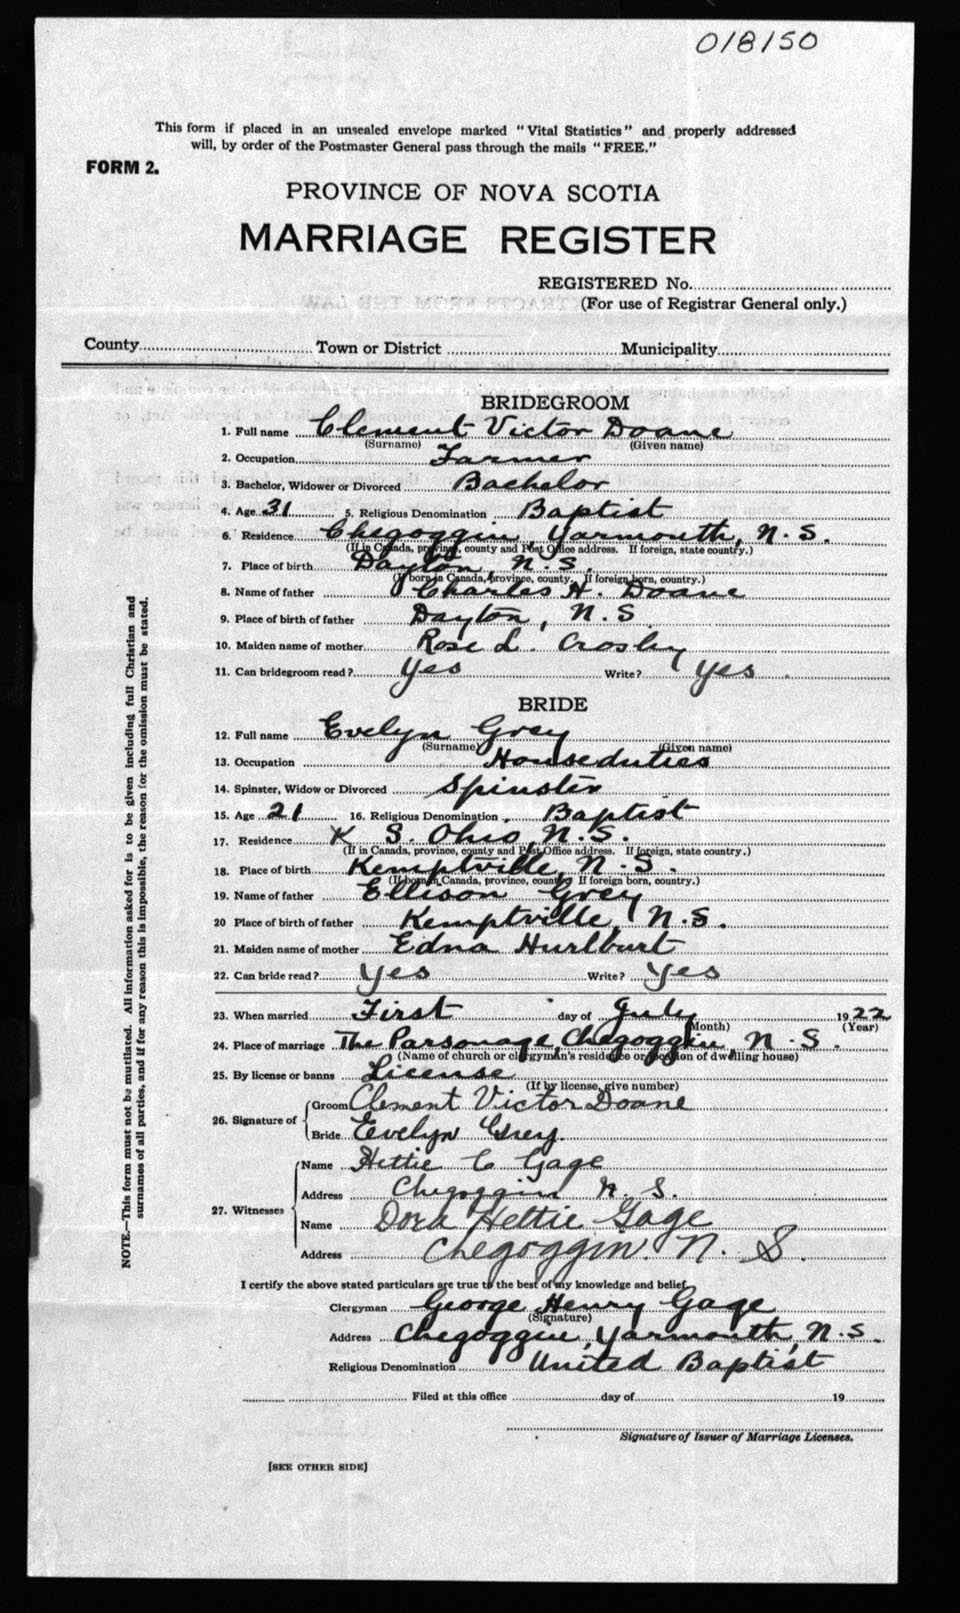 018150
This form if placed in an unsealed envelope marked "Vital Statistics" and properly addressed
will, by order of the Postmaster General pass through the mails "FREE."
FORM 2.
PROVINCE OF NOVA SCOTIA
MARRIAGE REGISTER
REGISTERED No.
(For use of Registrar General only.)
County Town or District Municipality
BRIDEGROOM
1. Full name Clement Victor Doane
(Surname) (Given name)
2. Occupation Farmer
3. Bachelor, Widower or Divorced Bachelor
4. Age 31 5. Religious Denomination Baptist
6. Residence Chegoggin, Yarmouth, N. S.
(If in Canada, province, county and Post Office address. If foreign, state country.)
7. Place of birth Dayton, N. S.
(If born in Canada, province, county. If foreign born, country.)
8. Name of father Charles H. Doane
9. Place of birth of father Dayton, N. S
10. Maiden name of mother Rose L. Crosby
11. Can bridegroom read? Yes Write? Yes.
BRIDE
12. Full name Evelyn Grey
(Surname) (Given name)
13. Occupation Houseduties
14. Spinster, Widow or Divorced Spinster
15. Age 21 16. Religious Denomination Baptist
17. Residence S. Ohio, N. S.
(If in Canada, province, county and Post Office address. If foreign, state country.)
18. Place of birth Kemptville, N. S.
(If born in Canada, province, county If foreign born, country.)
19. Name of father Ellison Grey
20 Place of birth of father Kemptville, N. S.
21. Maiden name of mother Edna Hurlburt
22. Can bride read? Yes Write? Yes
23. When married First day of July 1922
(Month) (Year)
24. Place of marriage The Parsonage, Chegoggin, N. S.
(Name of church or clergyman's residence or location of dwelling house)
25. By license or banns License
(If by license, give number)
26. Signature of Groom Clement Victor Doane
Bride Evelyn Grey.
27. Witnesses Name Hettie C Gage
Address Chegoggin N. S.
Name Dora Hettie Gage
Address Chegoggin. N. S.
I certify the above stated particulars are true to the best of my knowledge and belief.
Clergyman George Henry Gage
(Signature)
Address Chegoggin, Yarmouth, N. S.
Religious Denomination United Baptist
Filed at this office day of 19
Signature of Issuer of Marriage Licenses.
[SEE OTHER SIDE]
NOTE.—This form must not be mutilated. All information asked for is to be given including full Christian and
surnames of all parties, and if for any reason this is impossible, the reason for the omission must be stated.